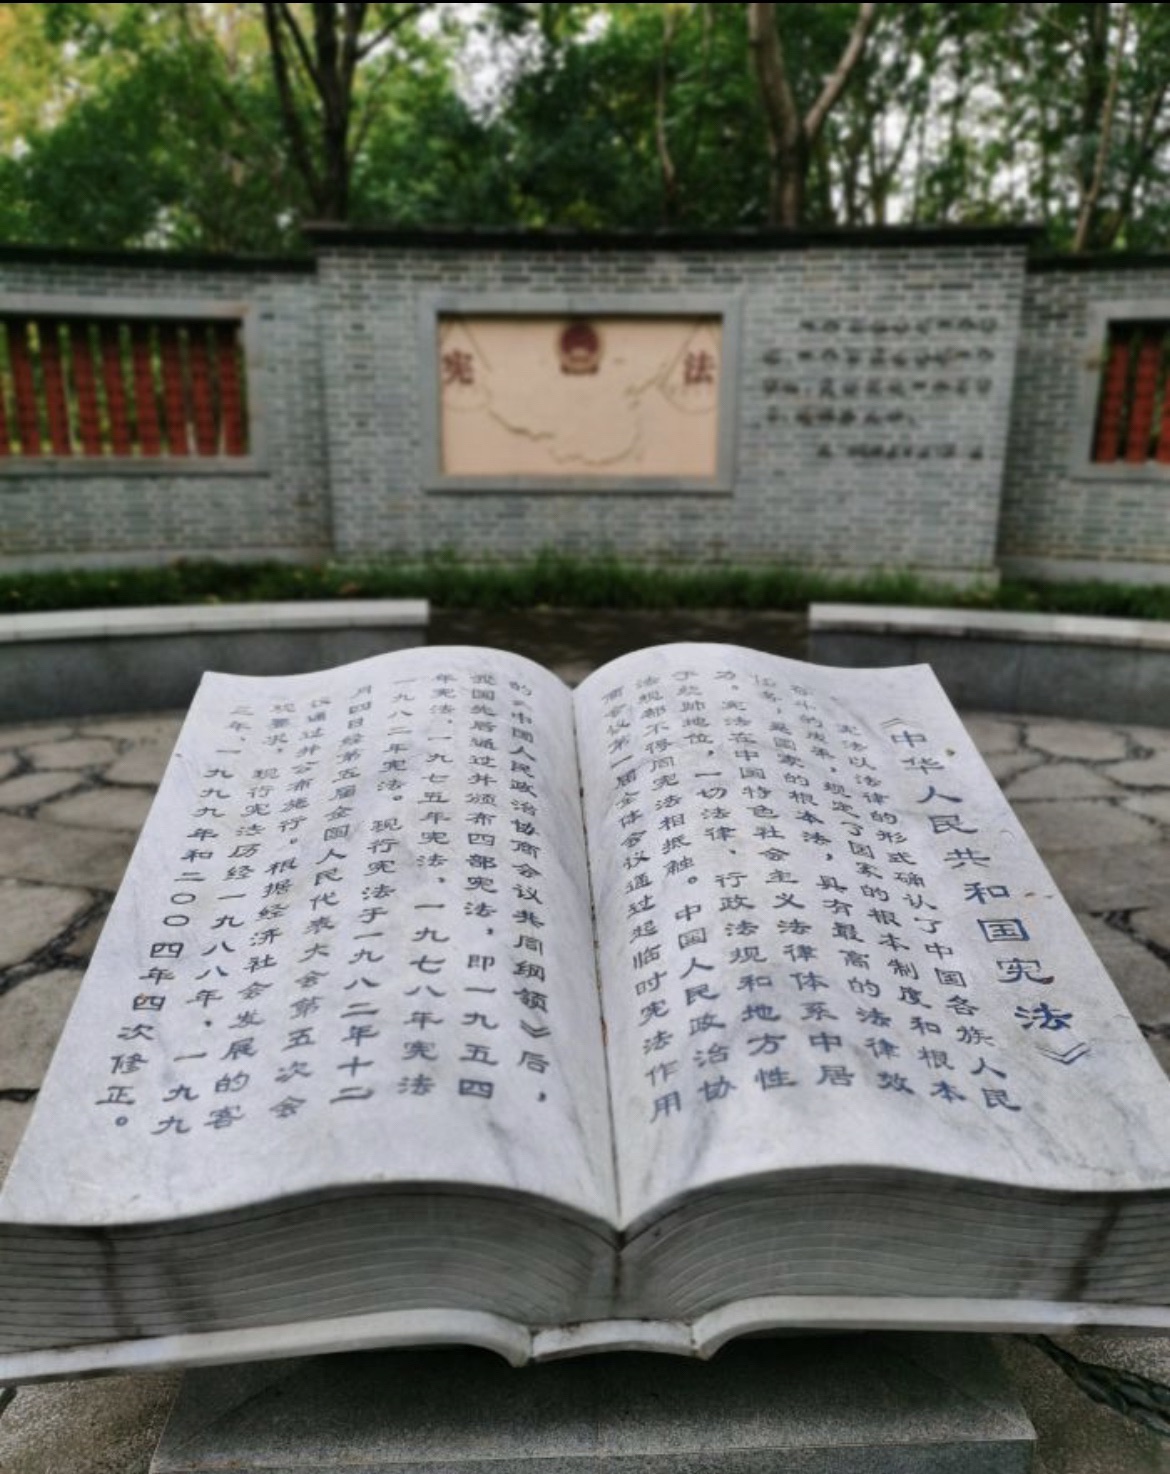 宪 法
《中华人民共和国宪法》
宪法以法律的形式确认了中国各族人民
奋斗的成果，规定了国家的根本制度和根本
任务，是国家的根本法，具有最高的法律效
力。宪法在中国特色社会主义法律体系中居
于统帅地位，一切法律、行政法规和地方性
法规都不得同宪法相抵触。中国人民政治协
商会议第一届全体会议通过起临时宪法作用
的《中国人民政治协商会议共同纲领》后，
我国先后通过并颁布四部宪法，即一九五四
年宪法、一九七五年宪法、一九七八年宪法
一九八二年宪法。现行宪法于一九八二年十二
月四日经第五届全国人民代表大会第五次会
议通过并公布施行。根据经济社会发展的客
观要求，现行宪法历经一九八八年、一九九
三年、一九九九年和二〇〇四年四次修正。